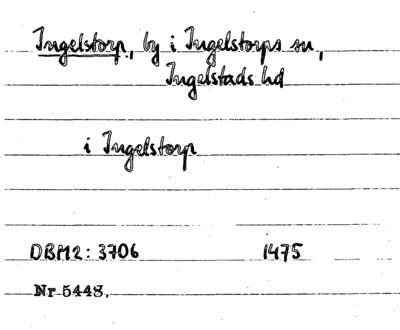 Ingelstorp, by i Ingelstorps sn,
Ingelstads hd
i Ingelstorp
DBM2: 3706 1475
Nr 5448.